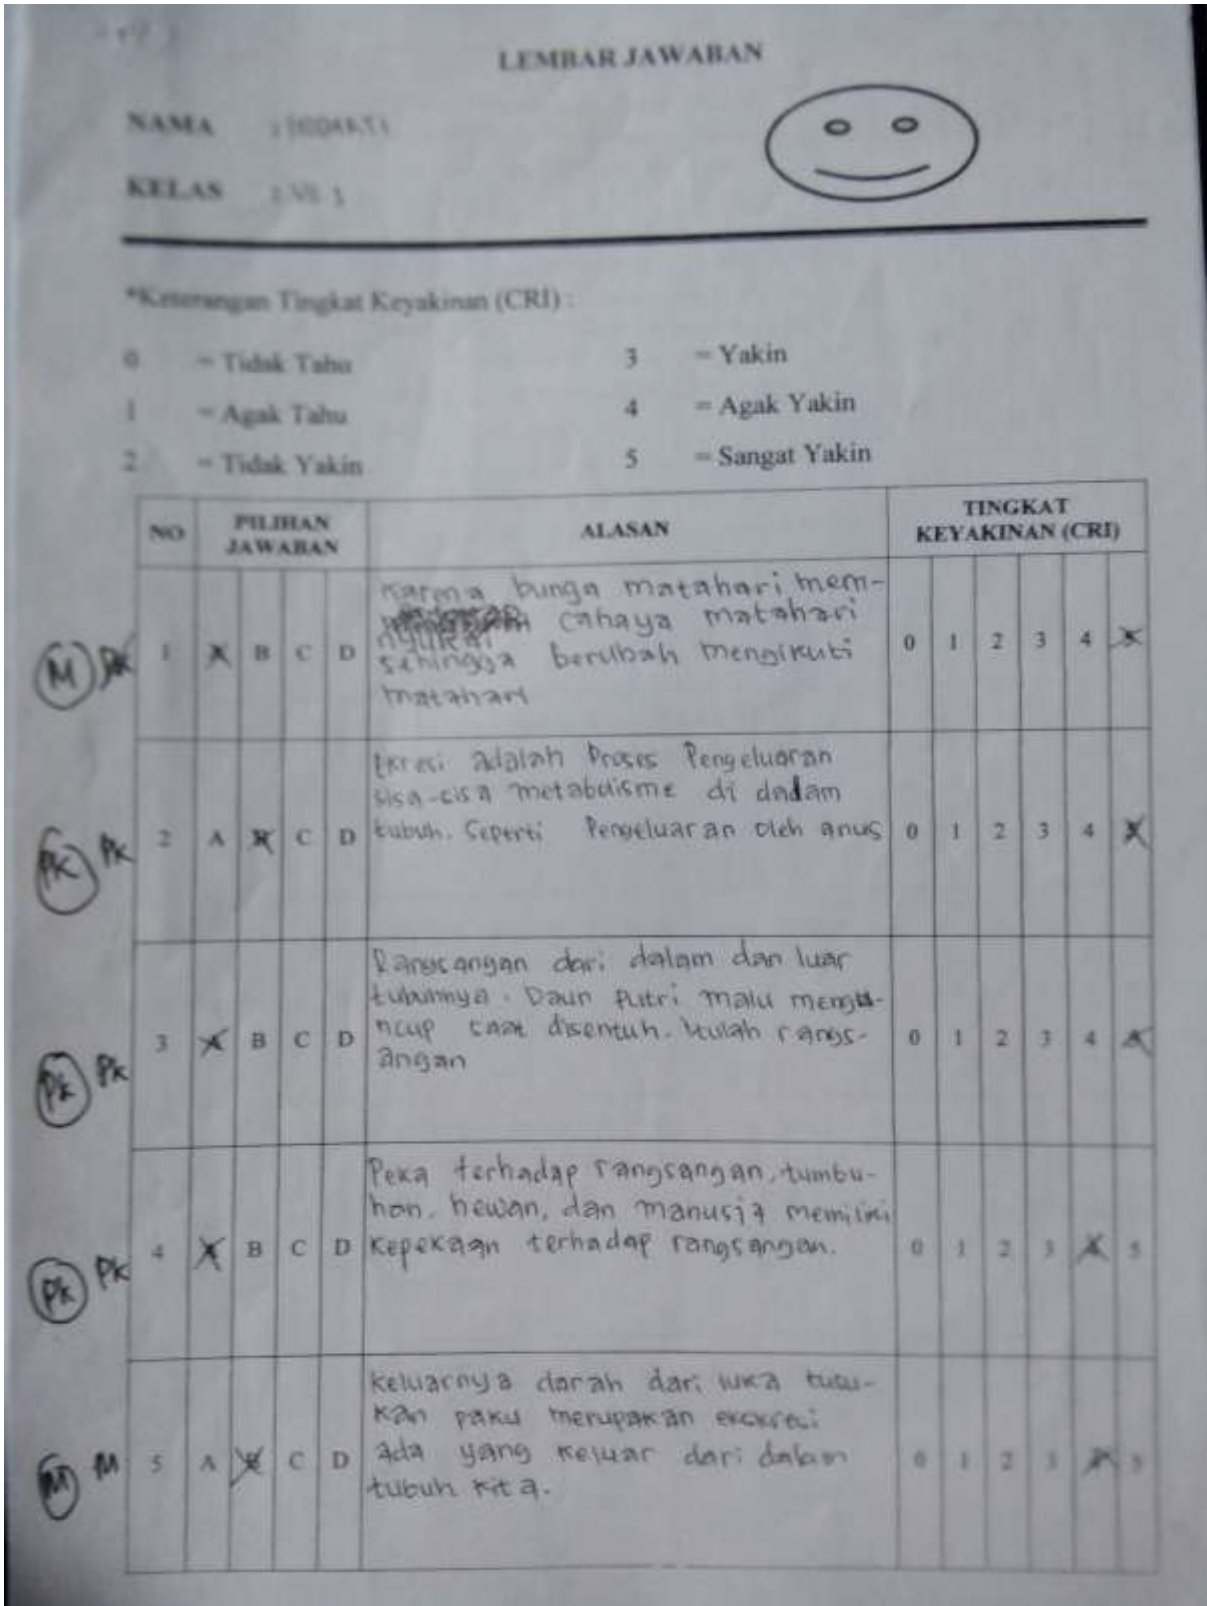 LEMBAR JAWABAN
NAMA :
KELAS : VII 1
*Keterangan Tingkat Keyakinan (CRI) :
0 = Tidak Tahu 3 = Yakin
1 = Agak Tahu 4 = Agak Yakin
2 = Tidak Yakin 5 = Sangat Yakin
NO PILIHAN JAWABAN ALASAN TINGKAT KEYAKINAN (CRI)
M PK 1 A B C D 0 1 2 3 4 5
Karena bunga matahari mem-
cahaya matahari
nyukai
sehingga berubah mengikuti
matahari
PK PK 2 A B C D 0 1 2 3 4 5
Ekresi adalah Proses Pengeluaran
sisa-sisa metabolisme di dadam
tubuh. Seperti Pengeluaran oleh anus
PK PK 3 A B C D 0 1 2 3 4 5
Rangsangan dari dalam dan luar
tubuhnya. Daun Putri malu mengu-
ncup saat disentuh. Itulah rangs-
angan
PK PK 4 A B C D 0 1 2 3 4 5
Peka terhadap rangsangan, tumbu-
han, hewan, dan manusia memiliki
kepekaan terhadap rangsangan.
M M 5 A B C D 0 1 2 3 4 5
Keluarnya darah dari luka tusu-
kan paku merupakan
ada yang keluar dari dalam
tubuh kita.